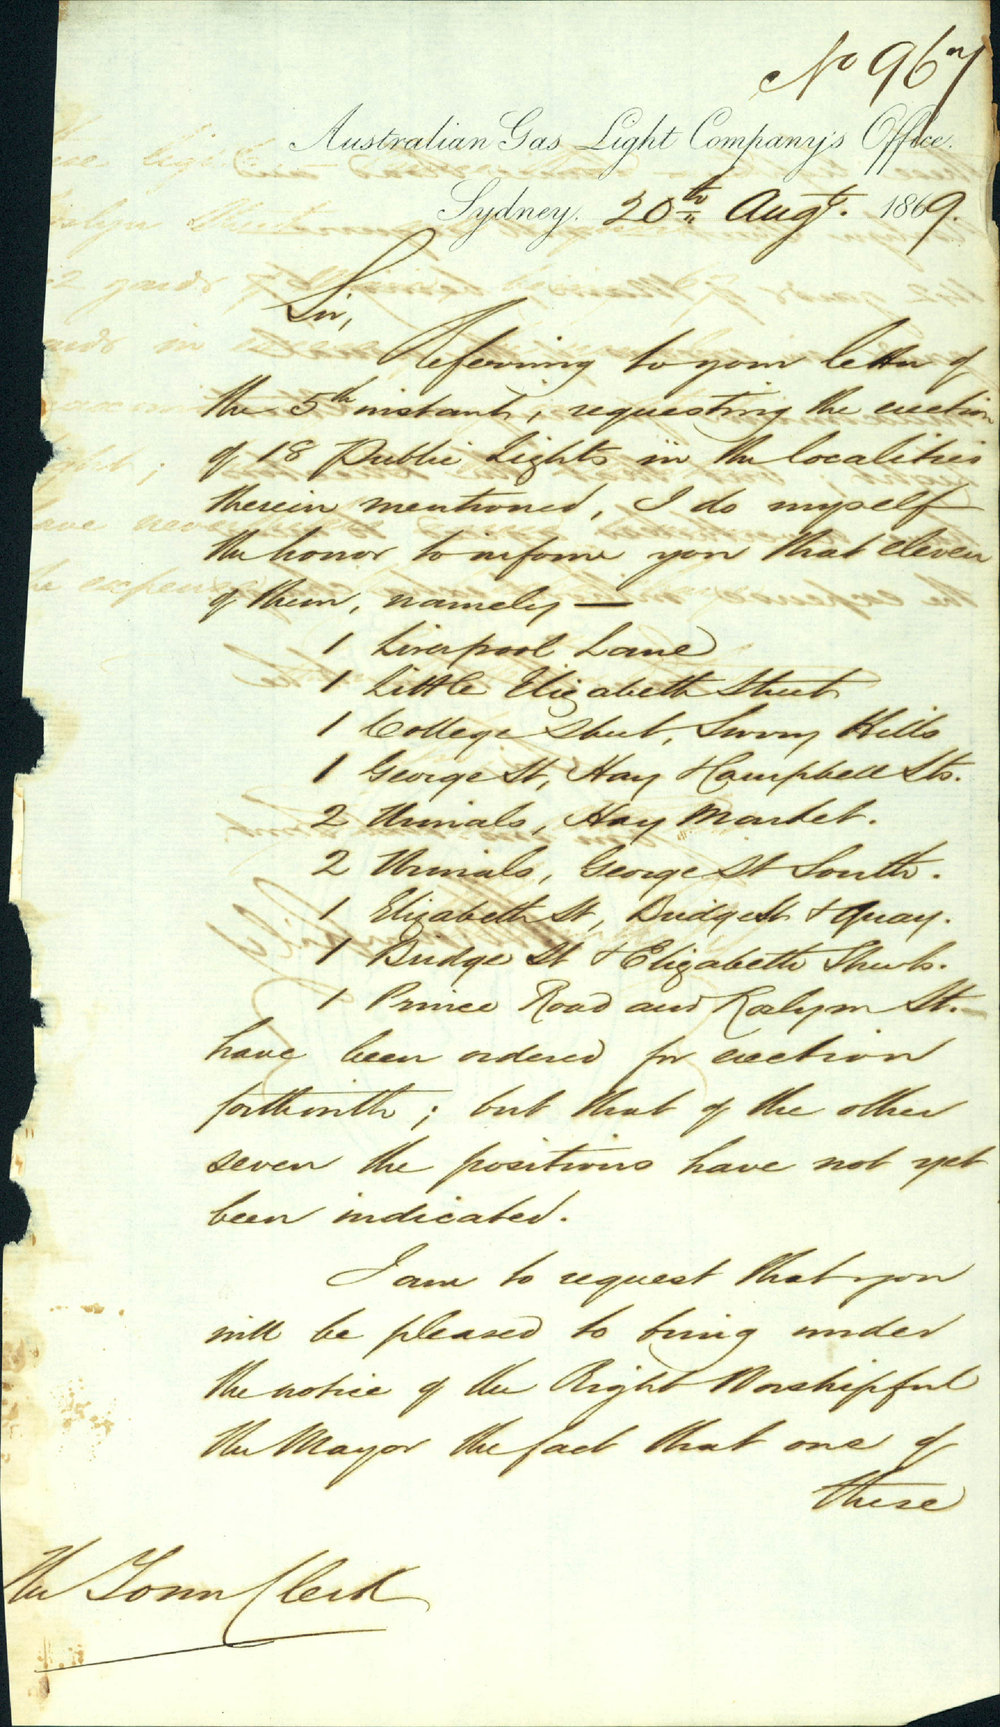 No 967
Australian Gas Light Company's Office.
Sydney. 20th Augt. 1869.
Sir,
Referring to your letter of
the 5th instant, requesting the erection
of 18 Public Lights in the localities
therein mentioned, I do myself
the honor to inform you that eleven
of them, namely —
1 Liverpool Lane
1 Little Elizabeth Street
1 College Street, Surry Hills
1 George St, Hay & Campbell Sts.
2 Urinals, Hay Market.
2 Urinals, George St South.
1 Elizabeth St, Bridge St & Quay.
1 Bridge St & Elizabeth Streets.
1 Prince Road and Roslyn St.
have been ordered for erection
forthwith; but that of the other
seven the positions have not yet
been indicated.
I am to request that you
will be pleased to bring under
the notice of the Right Worshipful
the Mayor the fact that one of
these
The Town Clerk